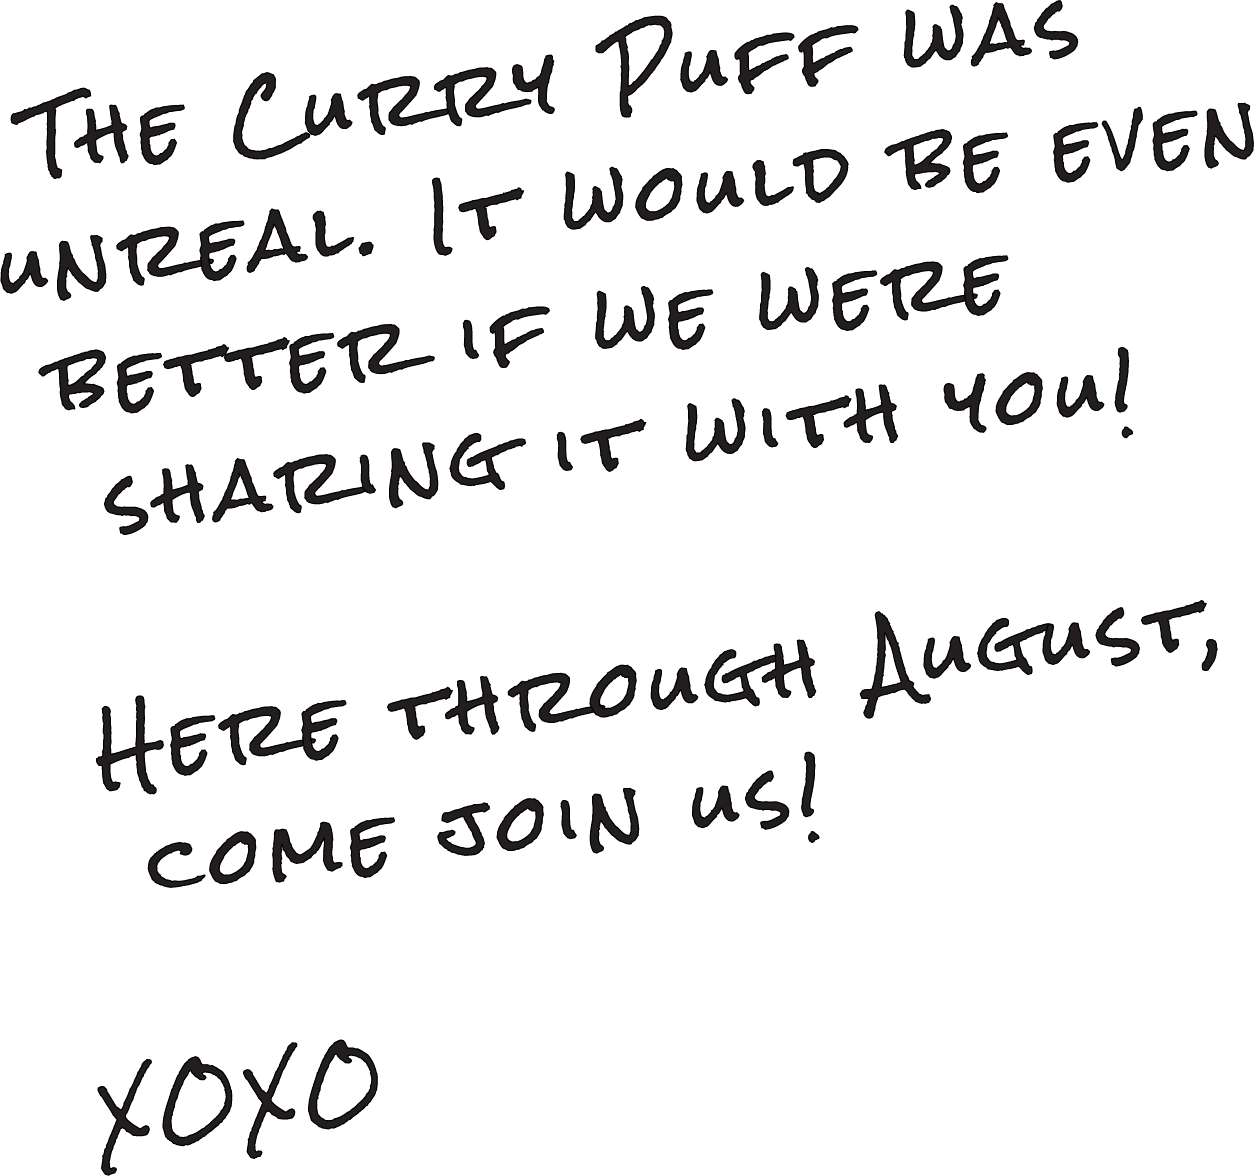 The Curry Puff was
unreal. It would be even
better if we were
sharing it with you!
Here through August,
come join us!
xoxo